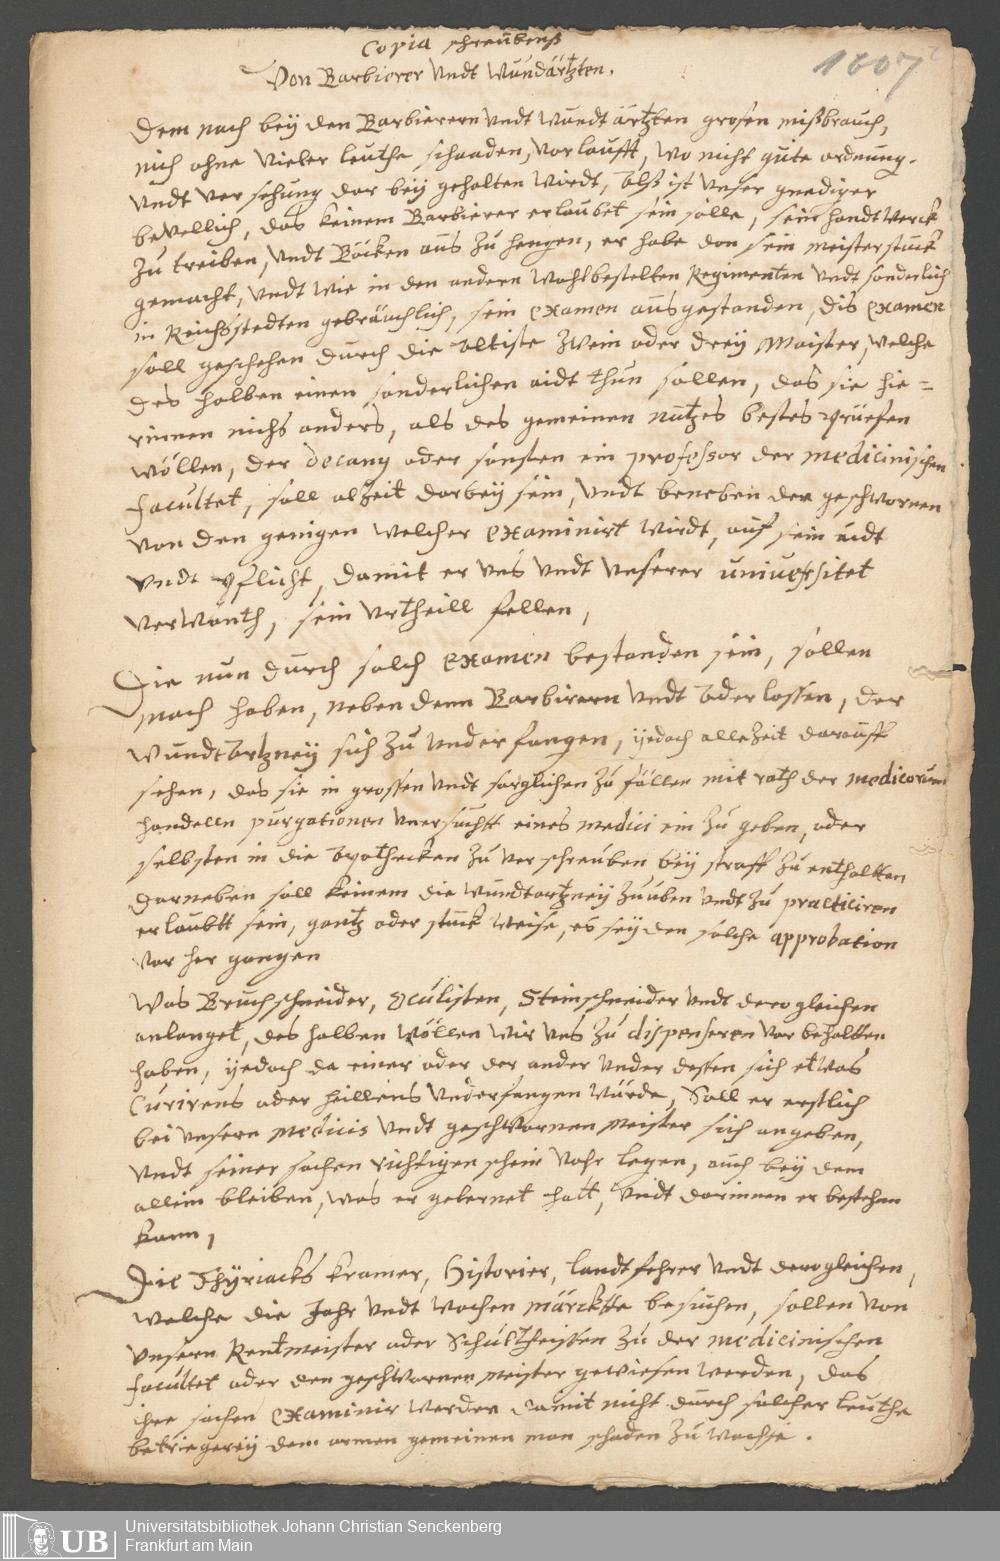 Copia schreübens
Von Barbierer Undt Wundärtzten.
1607
Dem nach beÿ den Barbierern Undt Wundtärtzten grosen mißbrauch,
nich ohne Vieler leuthe schaaden, Vorlaufft, Wo nicht gute ordnung.
Undt Versehung dar beÿ gehalten Wirdt, Alß ist Unser gnediger
bevellich, das keinem Barbierer erlaubet sein solle, sein handtwerck
Zu treiben, Undt Böcken aus Zu hengen, er habe dan sein meisterstuck
gemacht, Undt Wie in den andern Wohlbestelten Regimenten Undt sonderlich
in Reichsstedten gebräuchlich, sein Examen ausgestanden, Dis Examen
soll geschehen durch die Altiste Zwein oder dreÿ Maister, Welche
des halben einen sonderlichen aidt thun sollen, das sie hie=
rinnen nichs anders, als des gemeinen nutzes bestes prüefen
Wöllen, der decany oder sonsten ein professor der medicinischen
facultet, soll alzeit darbeÿ sein, Undt beneben den geschwornen
Von den genigen Welcher Examinirt Wirdt, auf sein aidt
Undt pflicht, damit er Uns Undt Unserer Universitet
VerWanth, sein Urtheill fellen,
Die nun durch solch Examen bestanden sein, sollen
mach haben, neben denn Barbirern Undt Aderlassen, der
WundtArtzneÿ sich Zu Underfangen, ÿedoch alleZeit darauff
sehen, das sie in grossen Undt sorglichen Zufällen mit rath der medicorum
handelln purgationen Unersucht eines medici ein Zu geben, oder
selbsten in die Apothecken Zu Verschreuben beÿ straff Zu enthaltten
Darneben soll keinem die Wundtartzneÿ Zu üben Undt Zu practiciren
erlaubtt sein, gantz oder stuck Weise, es seÿ den solche approbation
Vor her gangen
Was Bruchschneider, Oculisten, Steinschneider Undt derogleichen
anlanget, des halben Wöllen Wir Uns Zu dispenseren Vorbehaltten
haben, ÿedoch da einer oder der ander Under dessen sich etWas
Curirens oder heillens Underfangen Würde, Soll er erstlich
bei Unsern Medicis Undt geschwornen Meister sich angeben,
Undt seiner sachen richtigen schein Vohr legen, auch beÿ dem
allein bleiben, Was er gelernet hatt, Undt darinnen er bestehen
kann,
Die Thÿriacks kramer, Historier, landtfehrer Undt derogleichen,
Welche die Jahr Undt Wochen märckte besuchen, sollen Von
Unsern Rentmeister oder Schultheissen Zu der medicinischen
facultet oder den geschwornen Meister gewiesen Werden, das
ihre sachen Examinir Werden damit nicht durch solcher leuthe
betriegereÿ dem armen gemeinen man schaden Zu Wachse.
UB
Universitätsbibliothek Johann Christian Senckenberg
Frankfurt am Main